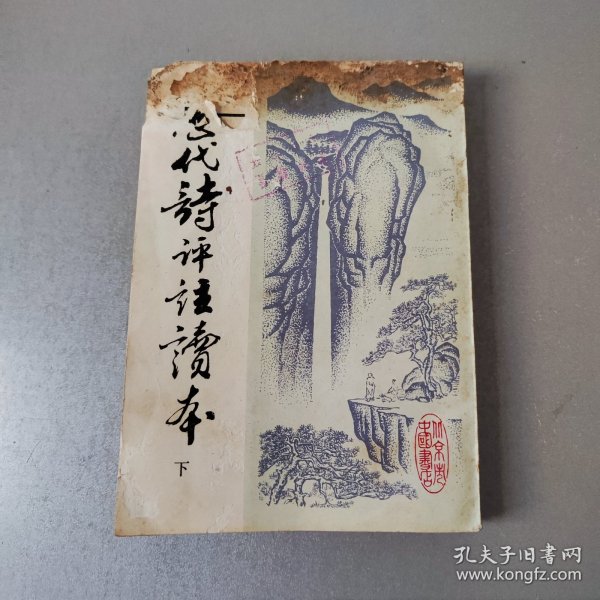 历代詩评注讀本
下
北京市
中國書店
孔夫子旧书网
www.kongfz.com